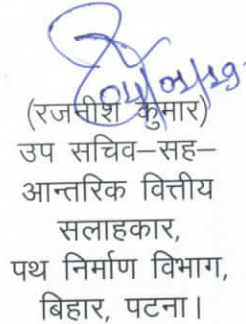 04/01/19
(रजनीश कुमार)
उप सचिव–सह–
आन्तरिक वित्तीय
सलाहकार,
पथ निर्माण विभाग,
बिहार, पटना।